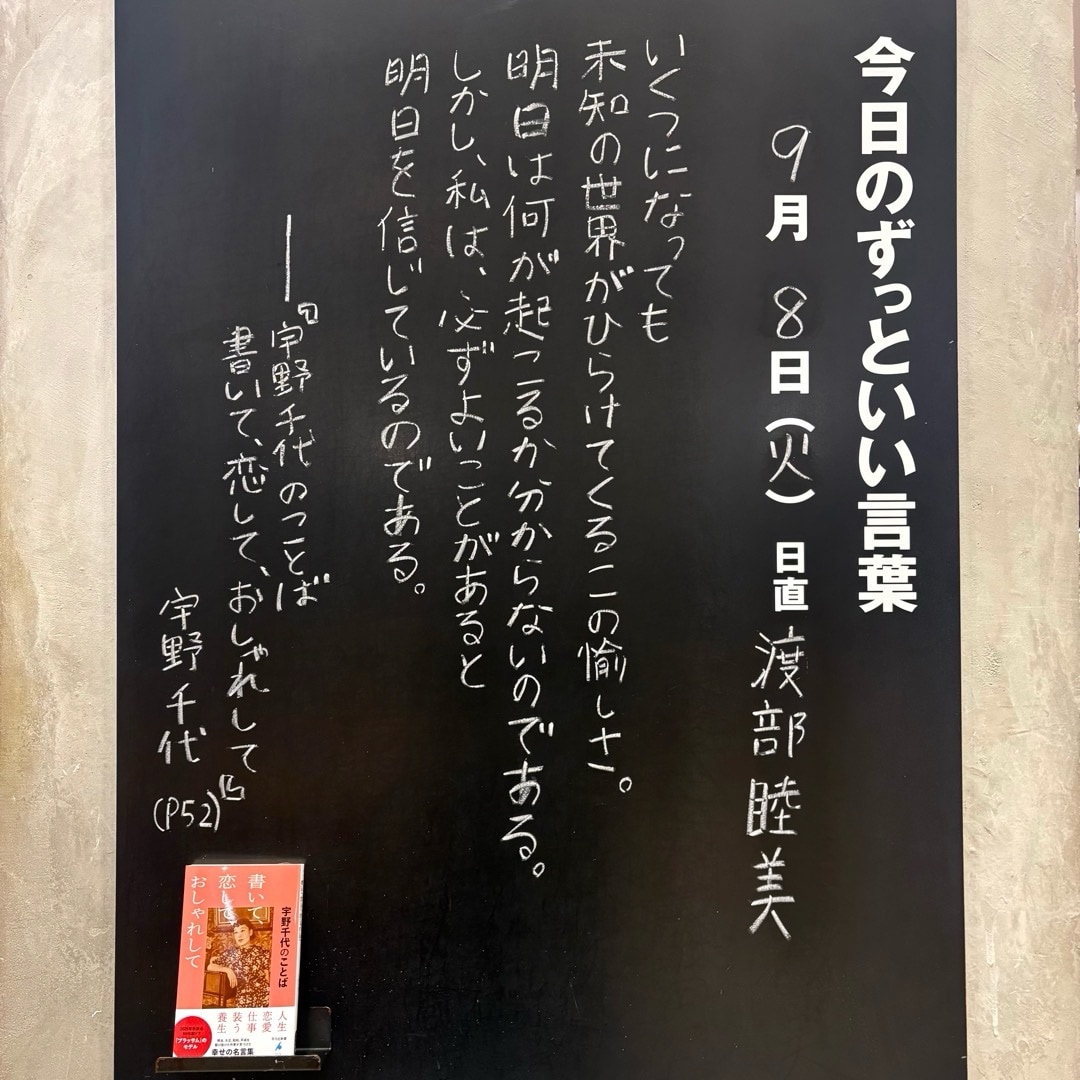 今日のずっといい言葉
9月8日(火) 日直 渡部睦美
いくつになっても
未知の世界がひらけてくるこの愉しさ。
明日は何が起こるか分からないのである。
しかし、私は、必ずよいことがあると
明日を信じているのである。
―『宇野千代のことば
書いて、恋して、おしゃれして』
宇野千代
(P52)
書いて、
恋して、
おしゃれして
宇野千代のことば
人生
恋愛
仕事
装う
養生
幸せの名言集
「ブラッサム」の
モデル